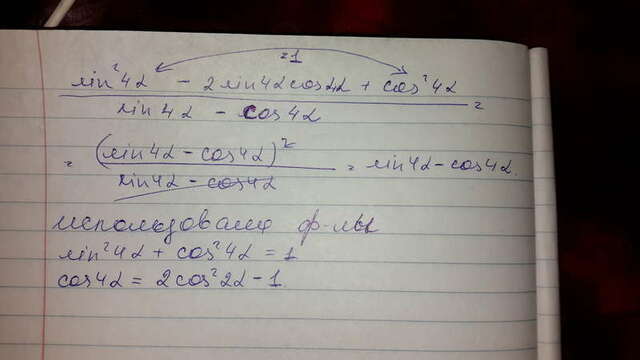 =1
sin²4α - 2sin4αcos4α + cos²4α
sin4α - cos4α =
= (sin4α - cos4α)²
sin4α - cos4α = sin4α - cos4α.
использованы ф-лы
sin²4α + cos²4α = 1
cos4α = 2cos²2α - 1